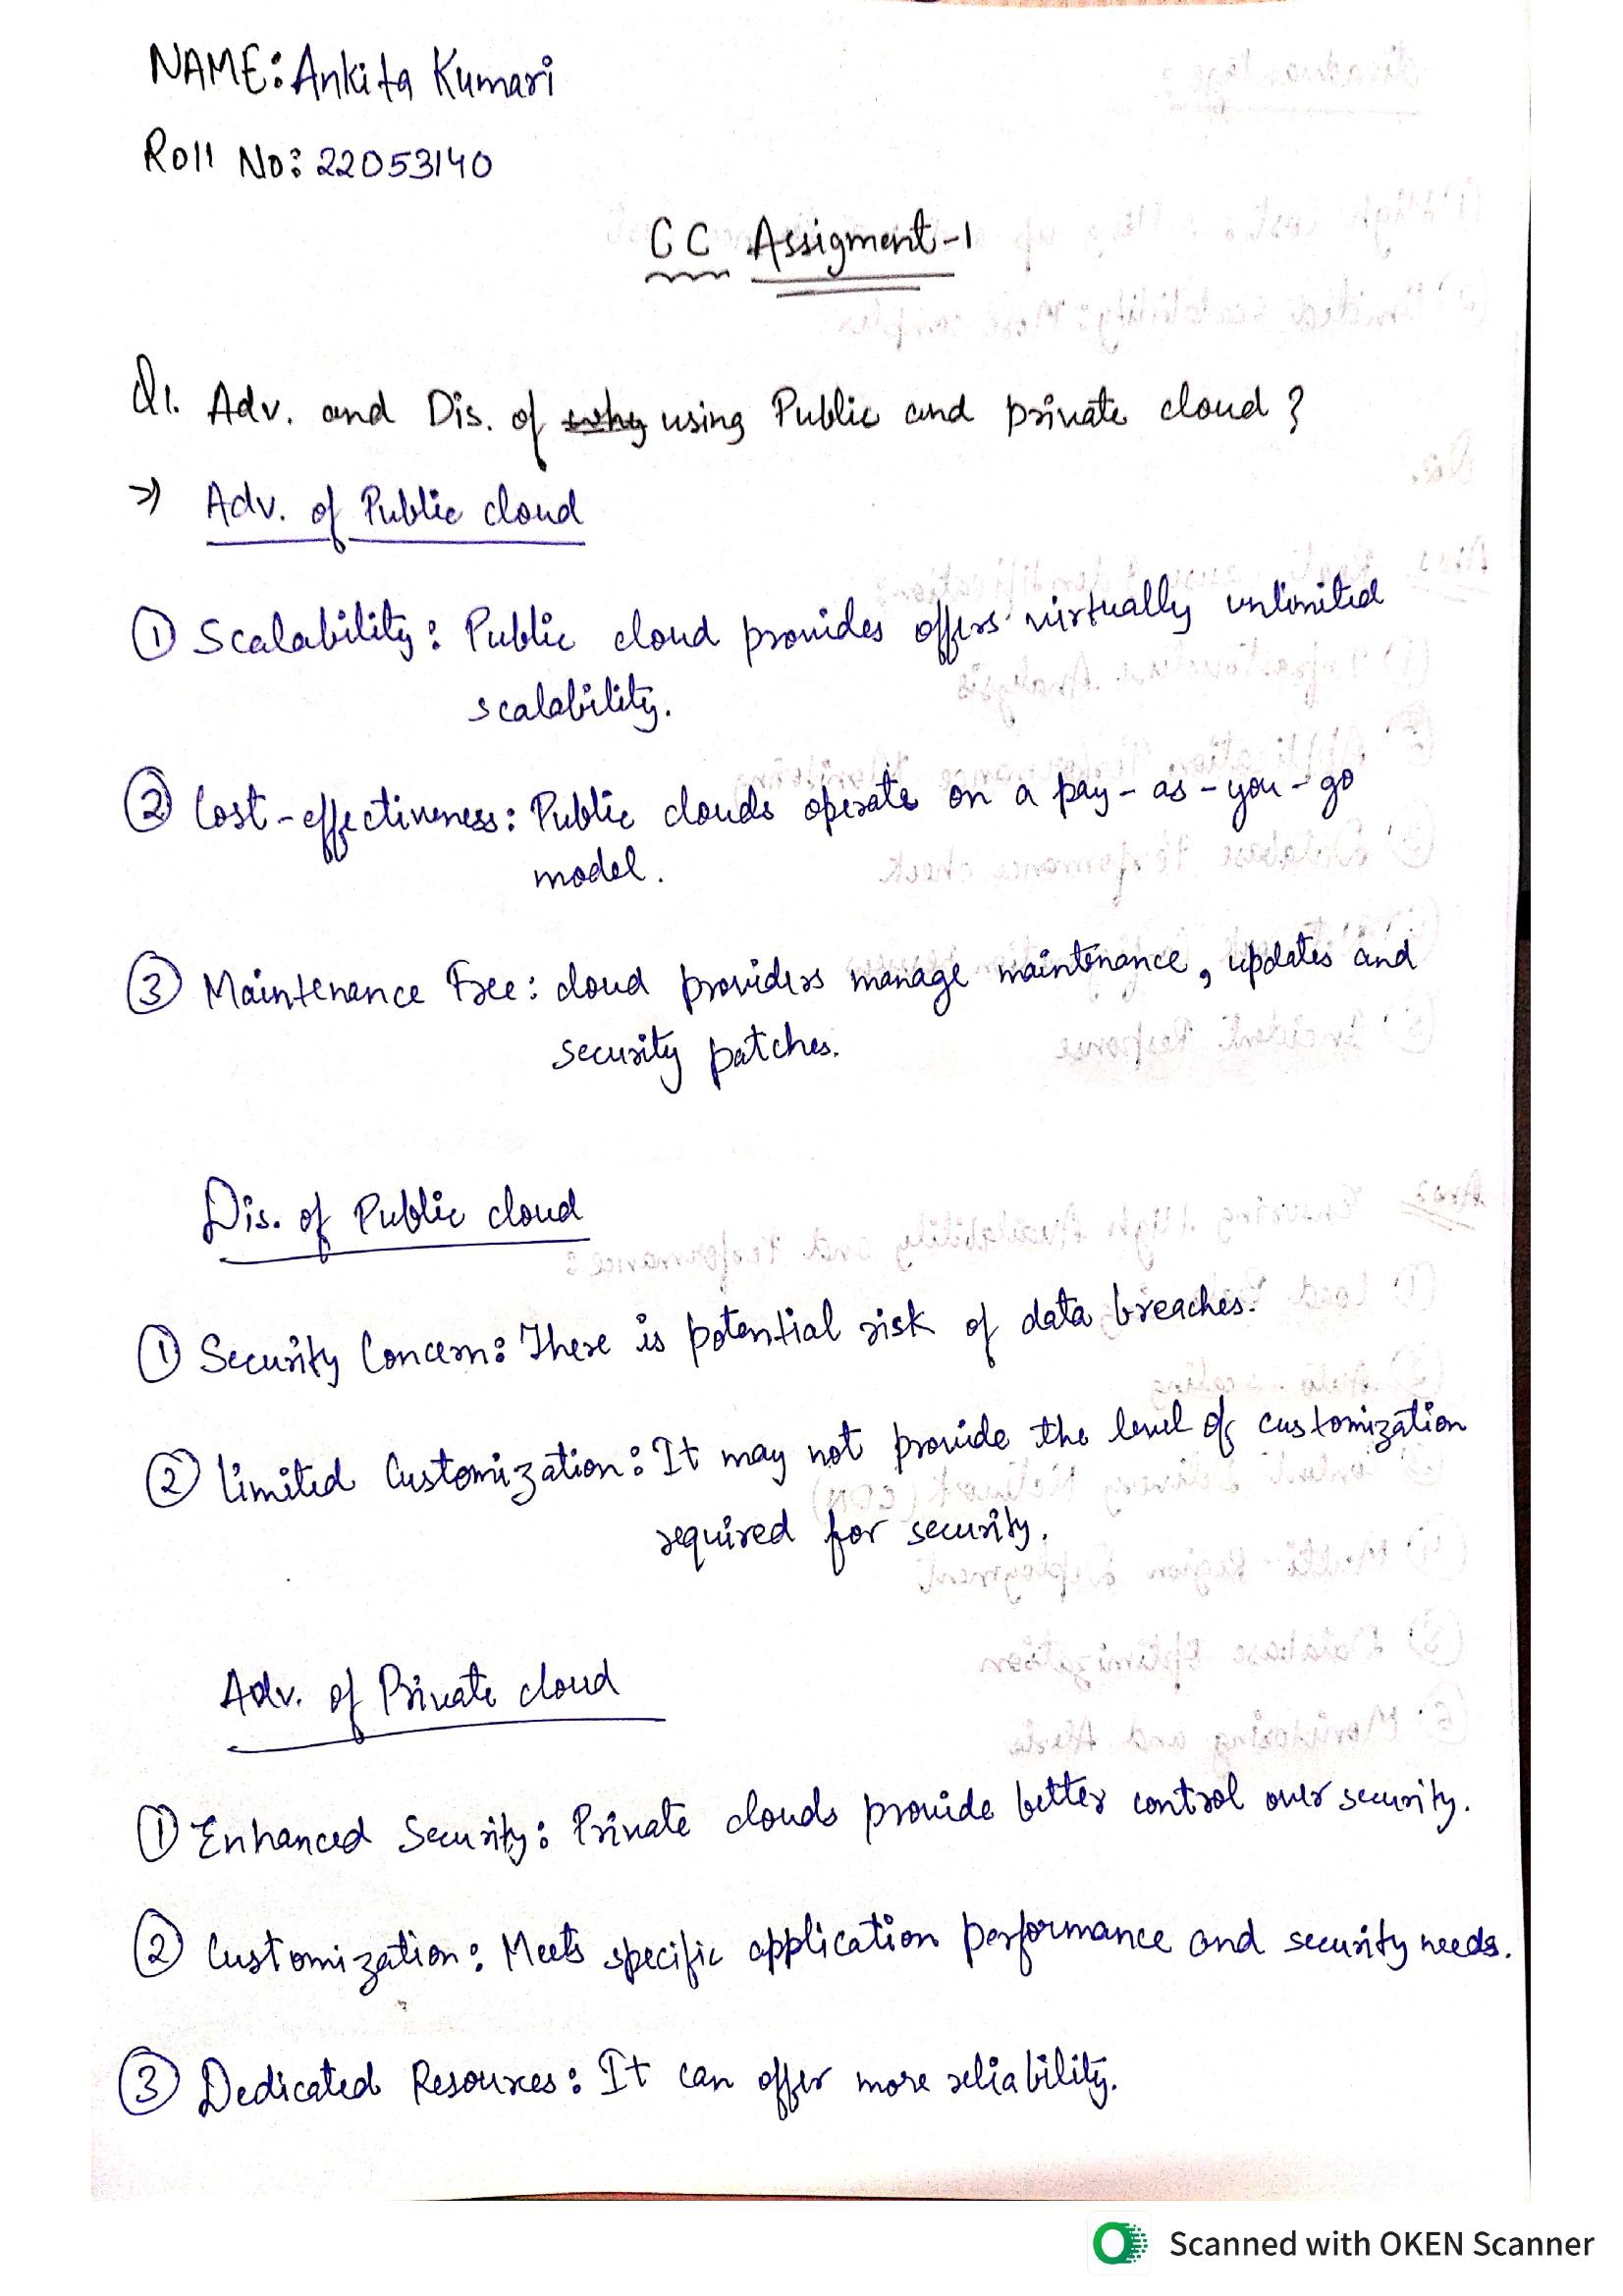 NAME: Ankita Kumari
Roll No: 22053140
CC Assigment-1
Q1. Adv. and Dis. of why using Public and private cloud?
⇒ Adv. of Public cloud
① Scalability: Public cloud provides offers virtually unlimited
scalability.
② Cost-effectiveness: Public clouds operate on a pay-as-you-go
model.
③ Maintenance Free: cloud providers manage maintenance, updates and
security patches.
Dis. of Public cloud
① Security Concern: There is potential risk of data breaches.
② Limited Customization: It may not provide the level of customization
required for security.
Adv. of Private cloud
① Enhanced Security: Private clouds provide better control over security.
② Customization: Meets specific application performance and security needs.
③ Dedicated Resources: It can offer more reliability.
Scanned with OKEN Scanner